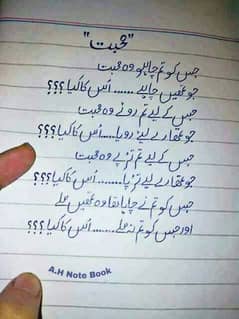 "محبت"
جس کو تم چاہو وہ محبت
جو تمہیں چاہے ...... اُس کا کیا ؟؟؟
جس کے لیے تم روئے وہ محبت
جو تمھارے لیے رویا.... اُس کا کیا ؟؟؟
جس کے لیے تم تڑپے وہ محبت
جو تمھارے لیے تڑپا .... اُس کا کیا ؟؟؟
جس کو تم نے چاہا تھا وہ تمھیں ملے
اور جس کو تم نہ ملے ...... اُس کا کیا ؟؟؟
A.H Note Book